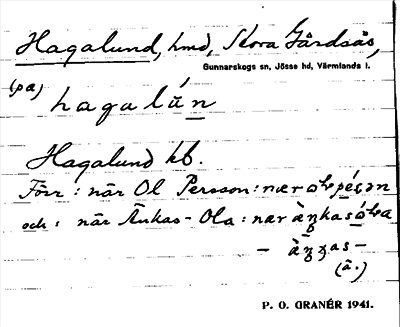 Hagalund, hmd, Stora Gårdsås,
Gunnarskogs sn, Jösse hd, Värmlands l.
(på) hagalún
Hagalund kb.
Förr: när Ol Persson: nær
och: när Änkas-Ola: nær
(ä.)
P. O. GRANÉR 1941.